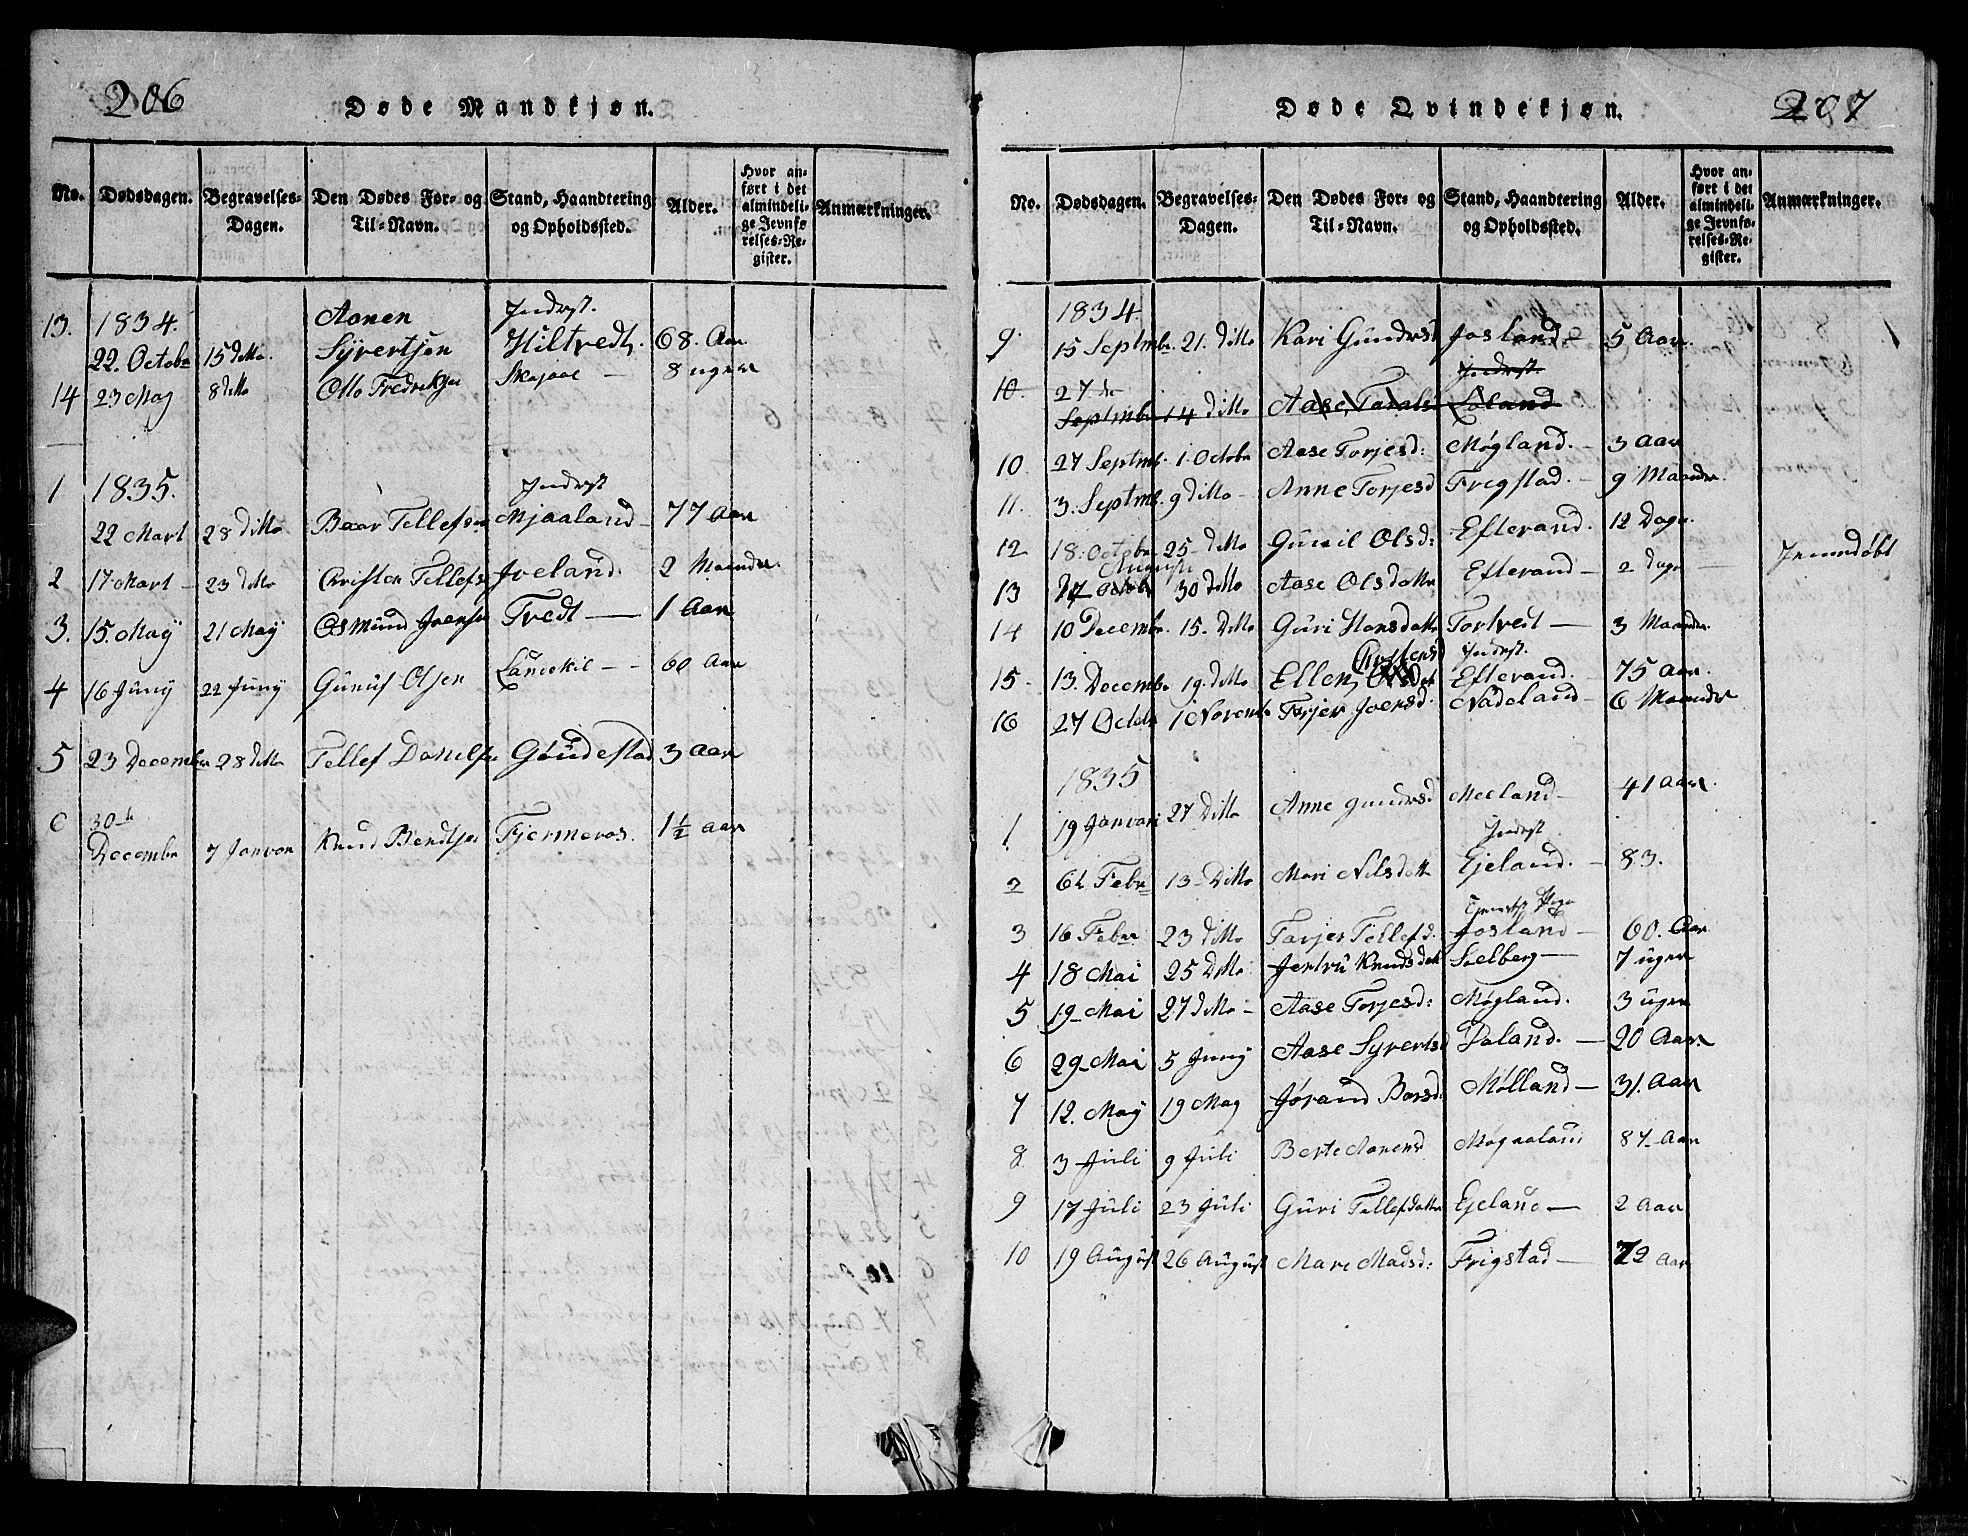 206
Døde Mandkjøn.
No. Dødsdagen. Begravelses-Dagen. Den Dødes For- og Til-Navn. Stand, Haandtering og Opholdssted. Alder. Hvor anført i det almindelige Jevnførelses-Register. Anmærkninger.
13. 1834. Aanen Inderst.
22. Octobr 15 ditto Syvertsen Hiltvedt. 68. Aar
14 23 May 8 ditto Otto Fredriksen 8 uger
1 1835. Inderst
22 Mart 28 ditto Baar Tellefsen Mjaaland 77 Aar
2 17 Mart - 23 ditto Christen Tellefs Joeland. 2 Maander.
3. 15. May 21 May Osmund Joens Tvedt — 1 Aar
4 16 Juny 22 Juny Gunuf Olsen 60 Aar
5 23 Decembr 28 ditto Tellef Danielsen Goudestad 3 Aar
6 30te
Decembr 7 Januar Knud Bendtsen Fjermeros. 1½ Aar
207
Døde Qvindekjøn.
No. Dødsdagen. Begravelses-Dagen. Den Dødes For- og Til-Navn. Stand, Haandtering og Opholdssted. Alder. Hvor anført i det almindelige Jevnførelses-Register. Anmærkninger.
1834.
9 15 Septmbr. 21. ditto Kari Gundersd Josland - 5 Aar.
10. 27de Inderst.
Septmbr 14 ditto Aase Taralsd Loland
10. 27 Septmb. 1 Octobr Aase Torjesd: Møgland. - 3 Aar
11. 3. Septmb. 9 ditto - Anne Torjesd Frigstad. - 9 Maander.
12 18. Octobr 25 ditto Gunil Olsd: Efterand. 12 Dage.
August
13 24 Octobr 30 ditto Aase Olsdatter Efterand - 2 Dage — Jemmdøbt
14 10 Decembr. 15. ditto Guri Hansdatter Tortvedt — 3 Maander.
Christensd Inderst.
15. 13. Decembr 19. ditto Ellen Olsdat Efterand. - 75 Aar.
16 27 Octobr 1 Novembr Torjer Joensd. Nadeland - 6 Maander
1835
1 19 Januari 27 ditto Anne Gundersd Meeland - 41 Aar.
Inderst
2 6te Febr 13 - ditto Mari Nilsdatter Ejeland. - 83.
3 16 Febr 23 ditto Torjer Tellefsd. Josland - 60. Aar
4 18 Mai 25 ditto Jertru Knudsdatter Soelberg — 7 uger
5 19 - Mai 27 ditto - Aase Torjesd: Møgland. 3 uger
6 29 - Mai 5 Juny Aase Syvertsd Daland. — 20 Aar.
7 12. May 19 May Jørand Borsd: Mølland — 31. Aar
8 3 Juli 9 Juli Berte Aanensd Møgaaland 87 - Aar
9 17 Juli 23 Juli Guri Tellefsdatter Ejeland — 2 Aar
10 19 August 26 August Mari Madsd: Frigstad — 72 Aar